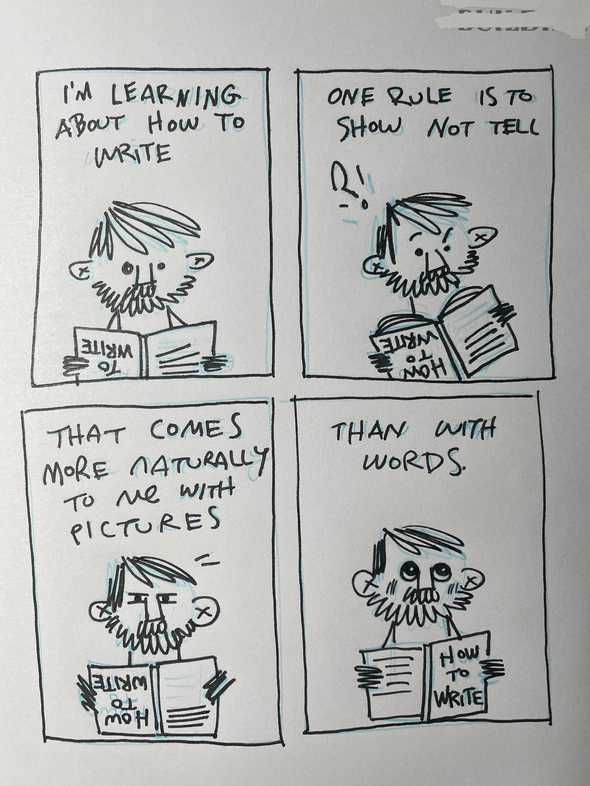 I'M LEARNING
ABOUT HOW TO
WRITE
TO
WRITE
ONE RULE IS TO
SHOW NOT TELL
HOW
TO
WRITE
THAT COMES
MORE NATURALLY
TO ME WITH
PICTURES
HOW
TO
WRITE
THAN WITH
WORDS.
HOW
TO
WRITE